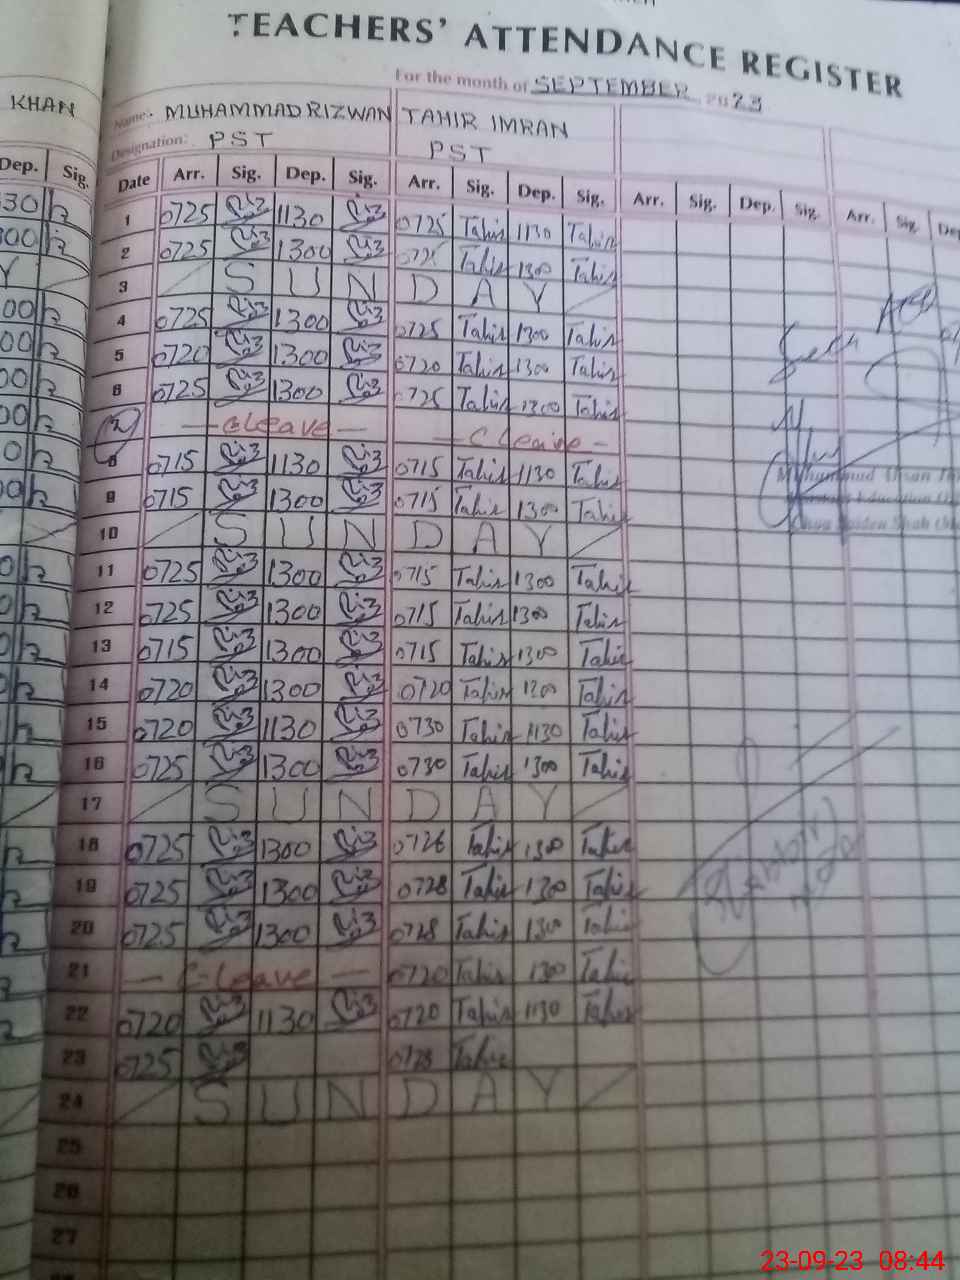 TEACHERS' ATTENDANCE REGISTER
For the month of SEPTEMBER 2023
KHAN Name: MUHAMMAD RIZWAN TAHIR IMRAN
Designation: PST PST
Dep. Sig. Date Arr. Sig. Dep. Sig. Arr. Sig. Dep. Sig. Arr. Sig. Dep. Sig. Arr. Sig. Dep
30 1 0725 Riz 1130 Riz 0725 Tahir 1130 Tahir
00 2 0725 Riz 1300 Riz 0725 Tahir 1300 Tahir
Y 3 S U N D A Y
00 4 0725 Riz 1300 Riz 0725 Tahir 1300 Tahir
00 5 0720 Riz 1300 Riz 0720 Tahir 1300 Tahir
00 6 0725 Riz 1300 Riz 0725 Tahir 1300 Tahir
00 7 — C Leave — — C Leave -
0 8 0715 Riz 1130 Riz 0715 Tahir 1130 Tahir
00 9 0715 Riz 1300 Riz 0715 Tahir 1300 Tahir
10 S U N D A Y
0 11 0725 Riz 1300 Riz 0715 Tahir 1300 Tahir
12 0725 Riz 1300 Riz 0715 Tahir 1300 Tahir
13 0715 Riz 1300 Riz 0715 Tahir 1300 Tahir
14 0720 Riz 1300 Riz 0720 Tahir 1200 Tahir
15 0720 Riz 1130 Riz 0730 Tahir 1130 Tahir
16 0725 Riz 1300 Riz 0730 Tahir 1300 Tahir
17 S U N D A Y
18 0725 Riz 1300 Riz 0726 Tahir 1300 Tahir
19 0725 Riz 1300 Riz 0728 Tahir 1300 Tahir
20 0725 Riz 1300 Riz 0728 Tahir 1300 Tahir
21 — C-Leave — 0720 Tahir 1300 Tahir
22 0720 Riz 1130 Riz 0720 Tahir 1130 Tahir
23 0725 Riz 0728 Tahir
24 S U N D A Y
25
26
27
Muhammad Education
Shah
23-09-23 08:44